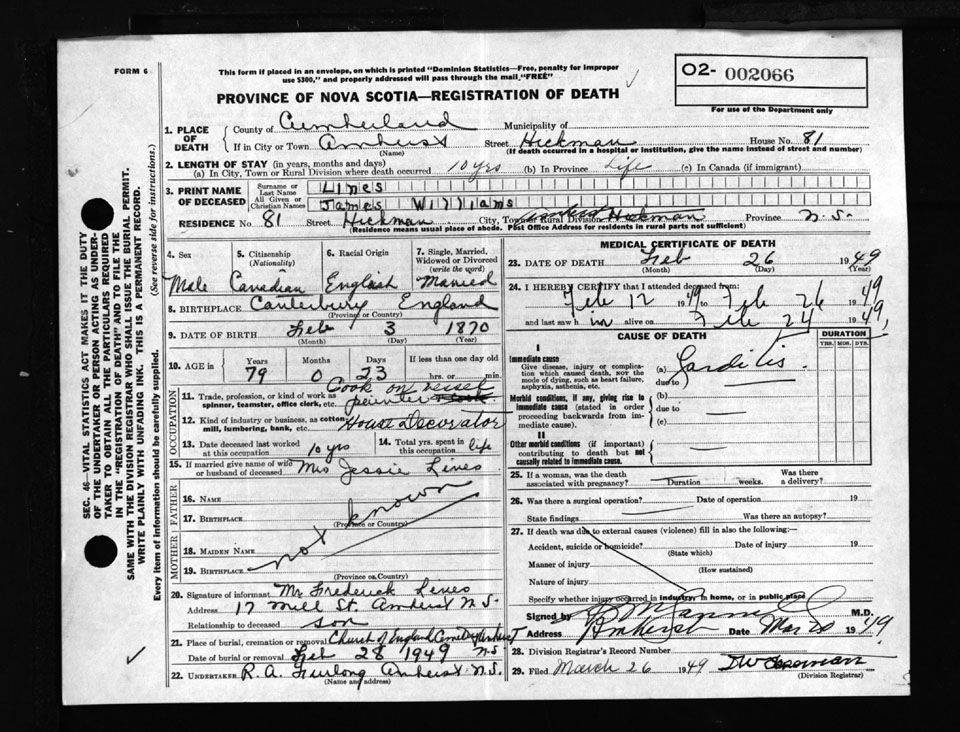 FORM 6
This form if placed in an envelope, on which is printed "Dominion Statistics—Free, penalty for improper
use $300," and properly addressed will pass through the mail "FREE"
O2- 002066
For use of the Department only
PROVINCE OF NOVA SCOTIA—REGISTRATION OF DEATH
1. PLACE OF DEATH
County of Cumberland Municipality of
If in City or Town Amherst Street Hickman House No. 81
(Name) (If death occurred in a hospital or institution, give the name instead of street and number)
2. LENGTH OF STAY (in years, months and days)
(a) In City, Town or Rural Division where death occurred 10 yrs (b) In Province Life (c) In Canada (if immigrant)
3. PRINT NAME OF DECEASED
Surname or Last Name Lines
All Given or Christian Names James Williams
RESIDENCE No. 81 Street Hickman City, Town or Rural Division Hickman Province N.S.
(Residence means usual place of abode. Post Office Address for residents in rural parts not sufficient)
4. Sex 5. Citizenship (Nationality) 6. Racial Origin 7. Single, Married, Widowed or Divorced (write the word)
Male Canadian English Married
8. BIRTHPLACE Canterbury England
(Province or Country)
9. DATE OF BIRTH Feb 3 1870
(Month) (Day) (Year)
10. AGE in Years Months Days If less than one day old
79 0 23 hrs. or min.
OCCUPATION
11. Trade, profession, or kind of work as spinner, teamster, office clerk, etc. Cook on vessel painter
12. Kind of industry or business, as cotton mill, lumbering, bank, etc. House Decorator
13. Date deceased last worked at this occupation 10 yrs 14. Total yrs. spent in this occupation life
15. If married give name of wife or husband of deceased Mrs Jessie Lines
FATHER
16. NAME
17. BIRTHPLACE
(Province or Country)
MOTHER
18. MAIDEN NAME
19. BIRTHPLACE
(Province or Country)
not known
20. Signature of informant Mr Frederick Lines
Address 17 Mill St. Amherst N.S.
Relationship to deceased son
21. Place of burial, cremation or removal Church of England Cemetery Amherst
Date of burial or removal Feb 28 1949 N.S.
22. UNDERTAKER R. A. Furlong Amherst N.S.
(Name and address)
MEDICAL CERTIFICATE OF DEATH
23. DATE OF DEATH Feb 26 1949
(Month) (Day) (Year)
24. I HEREBY CERTIFY that I attended deceased from:
Feb 12 1949 to Feb 26 1949
and last saw him alive on Feb 24 1949
CAUSE OF DEATH
DURATION
YRS. MOS. DYS.
I
Immediate cause
Give disease, injury or complication which caused death, nor the mode of dying, such as heart failure, asphysia, asthenia, etc.
(a) Carditis.
due to
Morbid conditions, if any, giving rise to immediate cause (stated in order proceeding backwards from immediate cause)
(b)
due to
(c)
II
Other morbid conditions (if important) contributing to death but not causally related to immediate cause.
25. If a woman, was the death associated with pregnancy? Duration weeks. Was there a delivery?
26. Was there a surgical operation? Date of operation 19
State findings Was there an autopsy?
27. If death was due to external causes (violence) fill in also the following:—
Accident, suicide or homicide? Date of injury 19
(State which)
Manner of injury
(How sustained)
Nature of injury
Specify whether injury occurred in industry, in home, or in public place
Signed by M.D.
Address Amherst Date Mar 20 1949
28. Division Registrar's Record Number
29. Filed March 26 1949
(Division Registrar)
SEC. 46—VITAL STATISTICS ACT MAKES IT THE DUTY
OF THE UNDERTAKER OR PERSON ACTING AS UNDER-
TAKER TO OBTAIN ALL THE PARTICULARS REQUIRED
IN THE "REGISTRATION OF DEATH" AND TO FILE THE
SAME WITH THE DIVISION REGISTRAR WHO SHALL ISSUE THE BURIAL PERMIT.
WRITE PLAINLY WITH UNFADING INK. THIS IS A PERMANENT RECORD.
Every item of information should be carefully supplied. (See reverse side for instructions.)